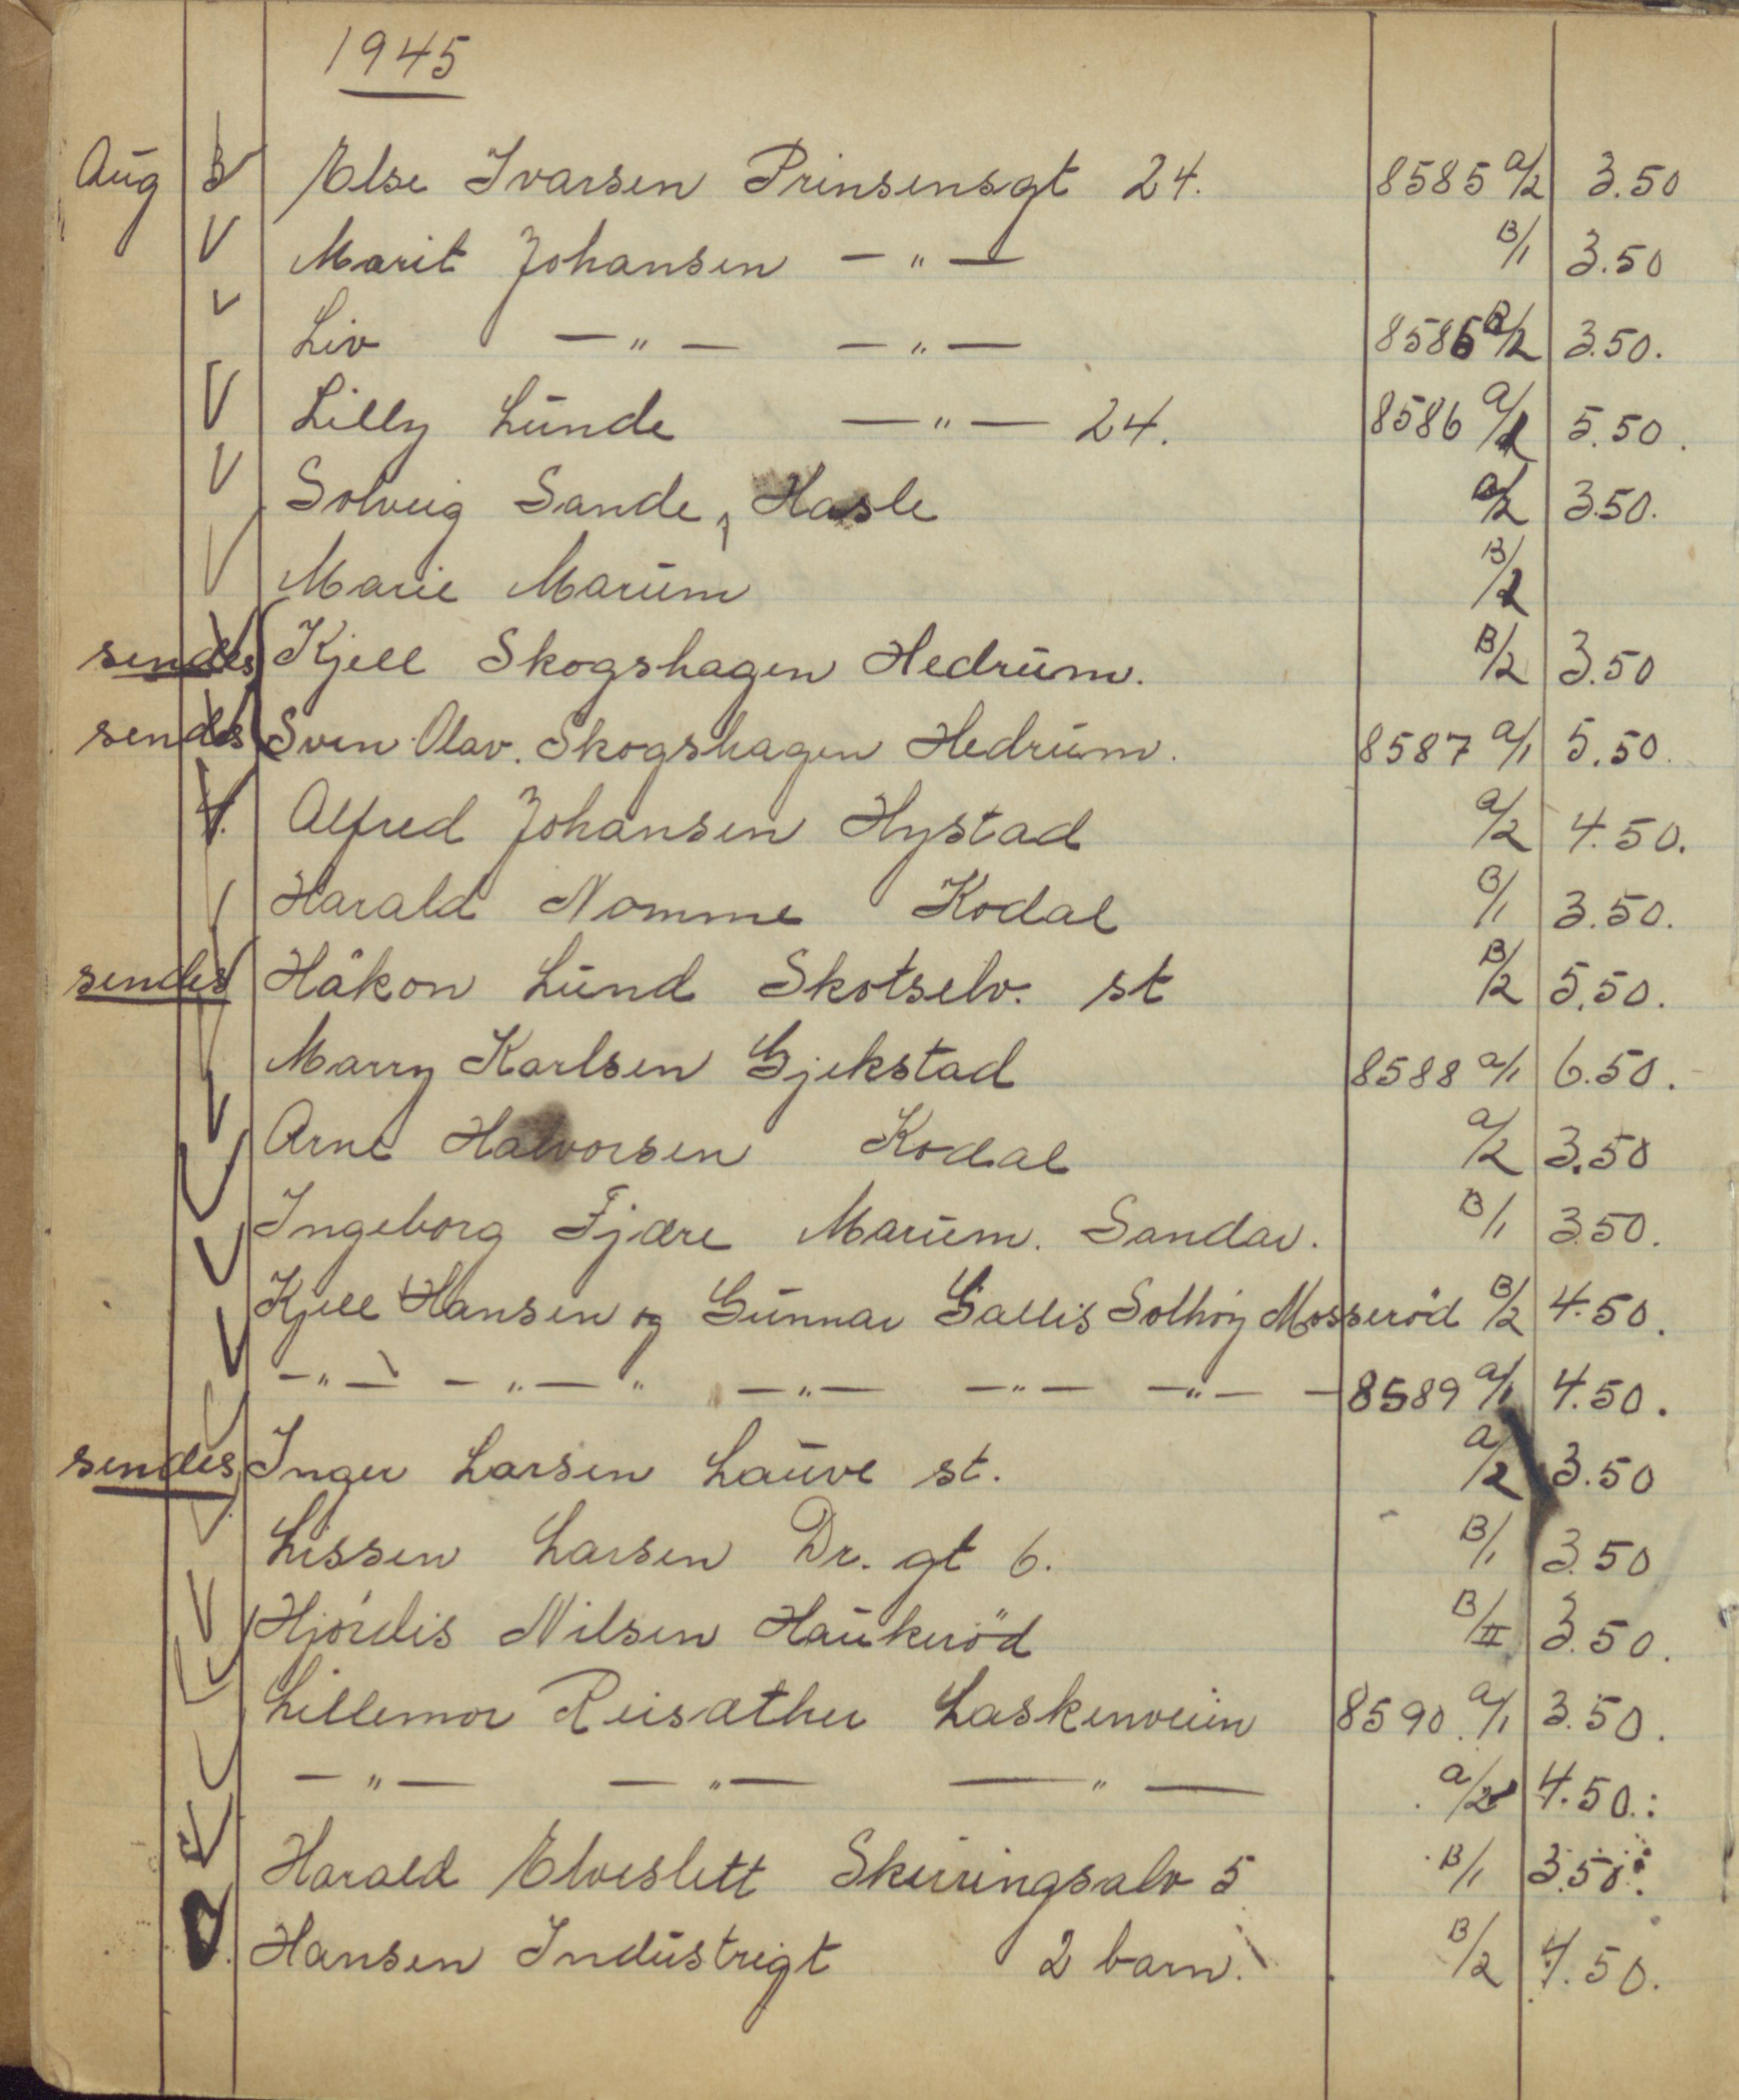 1945
Aug 3 Else Ivarsen Prinsensgt 24. 8585 a/2 3.50
Marit Johansen — " — B/1 3.50
Liv — " — — " — 8585 B/2 3.50.
Lilly Lunde — " — 24. 8586 a/1 5.50.
Solveig Sande, Hasle a/2 3.50.
Marie Marum B/2
sendes Kjell Skogshagen Hedrum. B/2 3.50
sendes Sven Olav. Skogshagen Hedrum. 8587 a/1 5.50.
4. Alfred Johansen Hystad a/2 4.50.
Harald Nomme Kodal B/1 3.50.
sendes Håkon Lund Skotselv. st B/2 5.50.
Marry Karlsen Gjekstad 8588 a/1 6.50.
Arne Halvorsen Kodal a/2 3.50
Ingeborg Fjære Marum. Sandar. B/1 3.50.
Kjell Hansen og Gunnar Gallis Solhöy Mosseröd B/2 4.50.
— " — — " — " — " — — " — — " — — 8589 a/1 4.50.
sendes Inger Larsen Lauve st. a/2 3.50
Lissen Larsen Dr. gt 6. B/1 3.50
Hjördis Nilsen Haukeröd B/II 3.50.
Lillemor Reisæther Laskenveien 8590. a/1 3.50.
— " — — " — — " — a/2 4.50.
Harald Elveslett Skiringsalv 5 B/1 3.50.
Hansen Industrigt 2 barn. B/2 4.50.